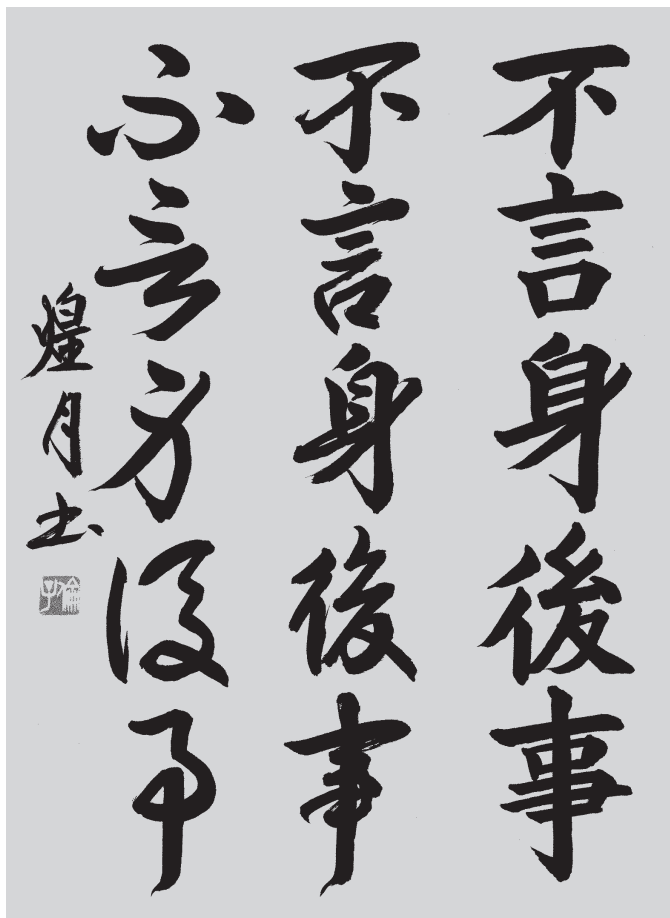 不言身後事
不言身後事
不言身後事
煌月士